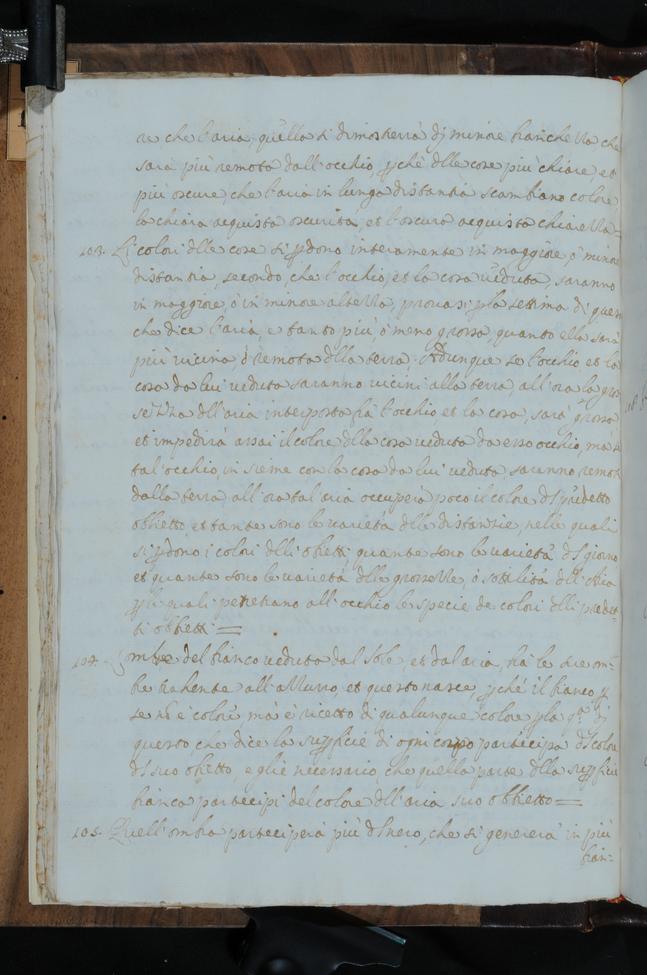 re che l'aria, quella si dimosterrà dj minore bianchezza che
sarà più remota dall'occhio, pché dlle cose più chiare et
più oscure, che l'aria in lunga distantia scambiano colore
la chiara acquista oscurità, et l'oscura acquista chiarezza=
103. Li colori dlle cose si pdono interamente in maggiore, ò minore
distantia, secondo, che l'occhio, et la cosa ueduta, saranno
in maggiore, ò in minore altezza, prouasi p la settima di questo
che dice l'aria, è tanto più, ò meno grossa, quanto ella sarà
più uicina, ò remota dlla terra; Adunque se l'occhio et la
cosa da lui ueduta saranno uicini alla terra, all'ora la gros
sezza dll'aria interposta frà l'occhio et la cosa, sarà grossa
et impedirà assai il colore dlla cosa ueduta da esso occhio, ma se
tal'occhio, in sieme con la cosa da lui ueduta, saranno remoti
dalla terra, all'ora tal'aria occuperà poco il colore dl pdetto
obbietto, et tante sono le uarietà dlle distanzie, nelle quali
si pdono i colori dlli obbietti, quante sono le uarietà dl giorno
et quante sono le uarietà dlle grossezze, ò sottilità dll'Aria
p le quali penetrano all'occhio le specie de colori dlli predet
ti obbietti=
104. L'ombre del bianco ueduto dal sole, et dal aria, hà le sue om=
bre trahente all'azzurro, et questo nasce, pché il bianco, p
se nō è colore, mà è ricetto di qualunque colore, p la 4.ª dj
questo, che dice la suppficie di ogni corpo partecipa dl colore
dl suo obietto, e gliè necessario, che quella parte dlla suppficie
bianca partecipi del colore dll'aria suo obbietto=
105. Quell'ombra parteciperà più dl nero, che si genererà in più
bian=